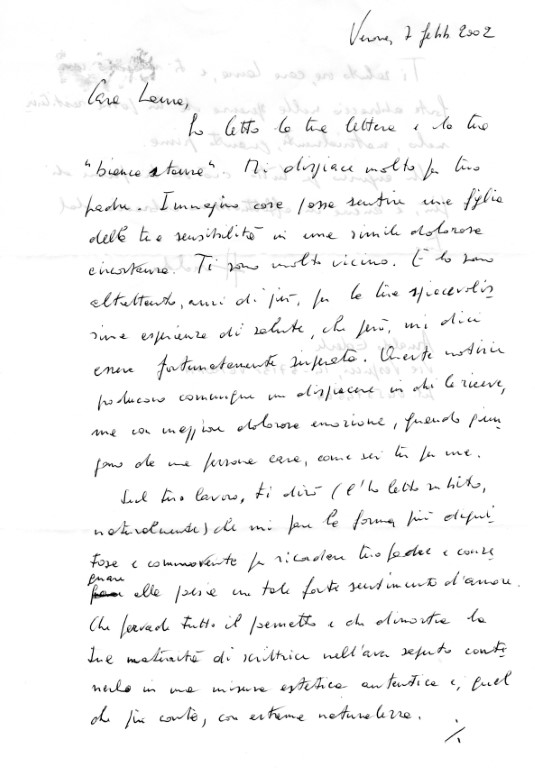 Verona, 7 febb. 2002
Cara Laura,
Ho letto la tua lettera e la tua
"bianca stanza". Mi dispiace molto per tuo
padre. Immagino cosa possa sentire una figlia
della tua sensibilità in una simile dolorosa
circostanza. Ti sono molto vicino. E lo sono
altrettanto, anzi di più, per la tua spiacevolis-
sima esperienza di salute, che però, mi dici
essere fortunatamente superata. Queste notizie
producono comunque un dispiacere in chi le riceve,
ma con maggiore dolorosa emozione, quando giun-
gono da una persona cara, come sei tu per me.
Sul tuo lavoro, ti dirò (l'ho letto subito,
naturalmente) che mi pare la forma più digni-
tosa e commovente per ricordare tuo padre e conse-
gnare alla poesia un tale forte sentimento d'amore.
Che pervade tutto il poemetto e che dimostra la
tua maturità di scrittrice nell'aver saputo conte-
nerlo in una misura estetica autentica e, quel
che più conta, con estrema naturalezza.
./.